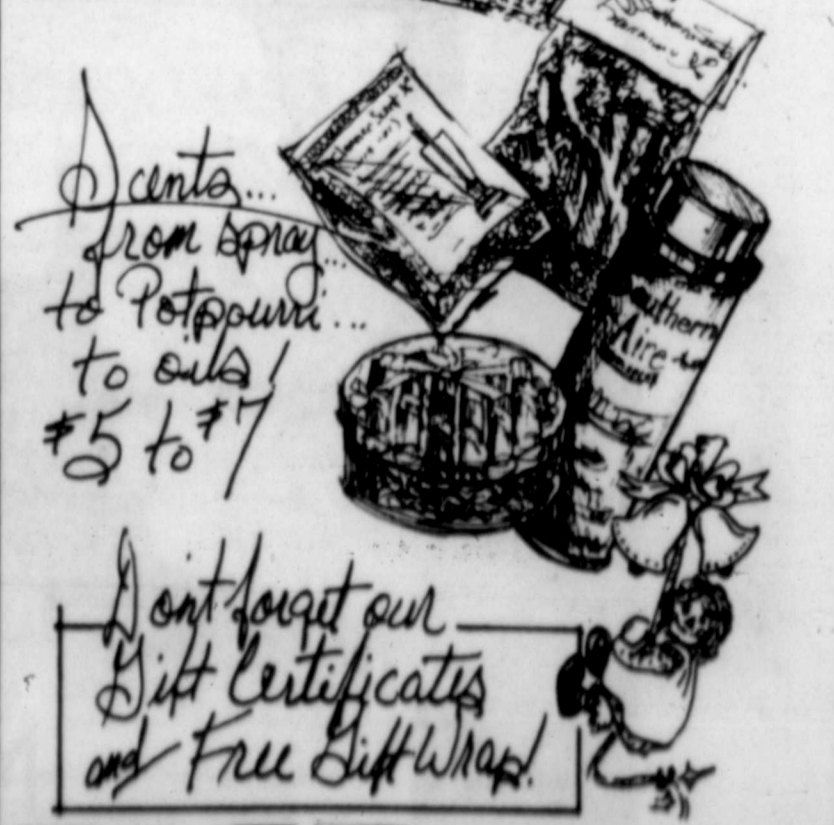 Scents...
from spray...
to Potpourri...
to oils!
$5 to $7
Southern
Aire
Don't forget our
Gift Certificates
and Free Gift Wrap!